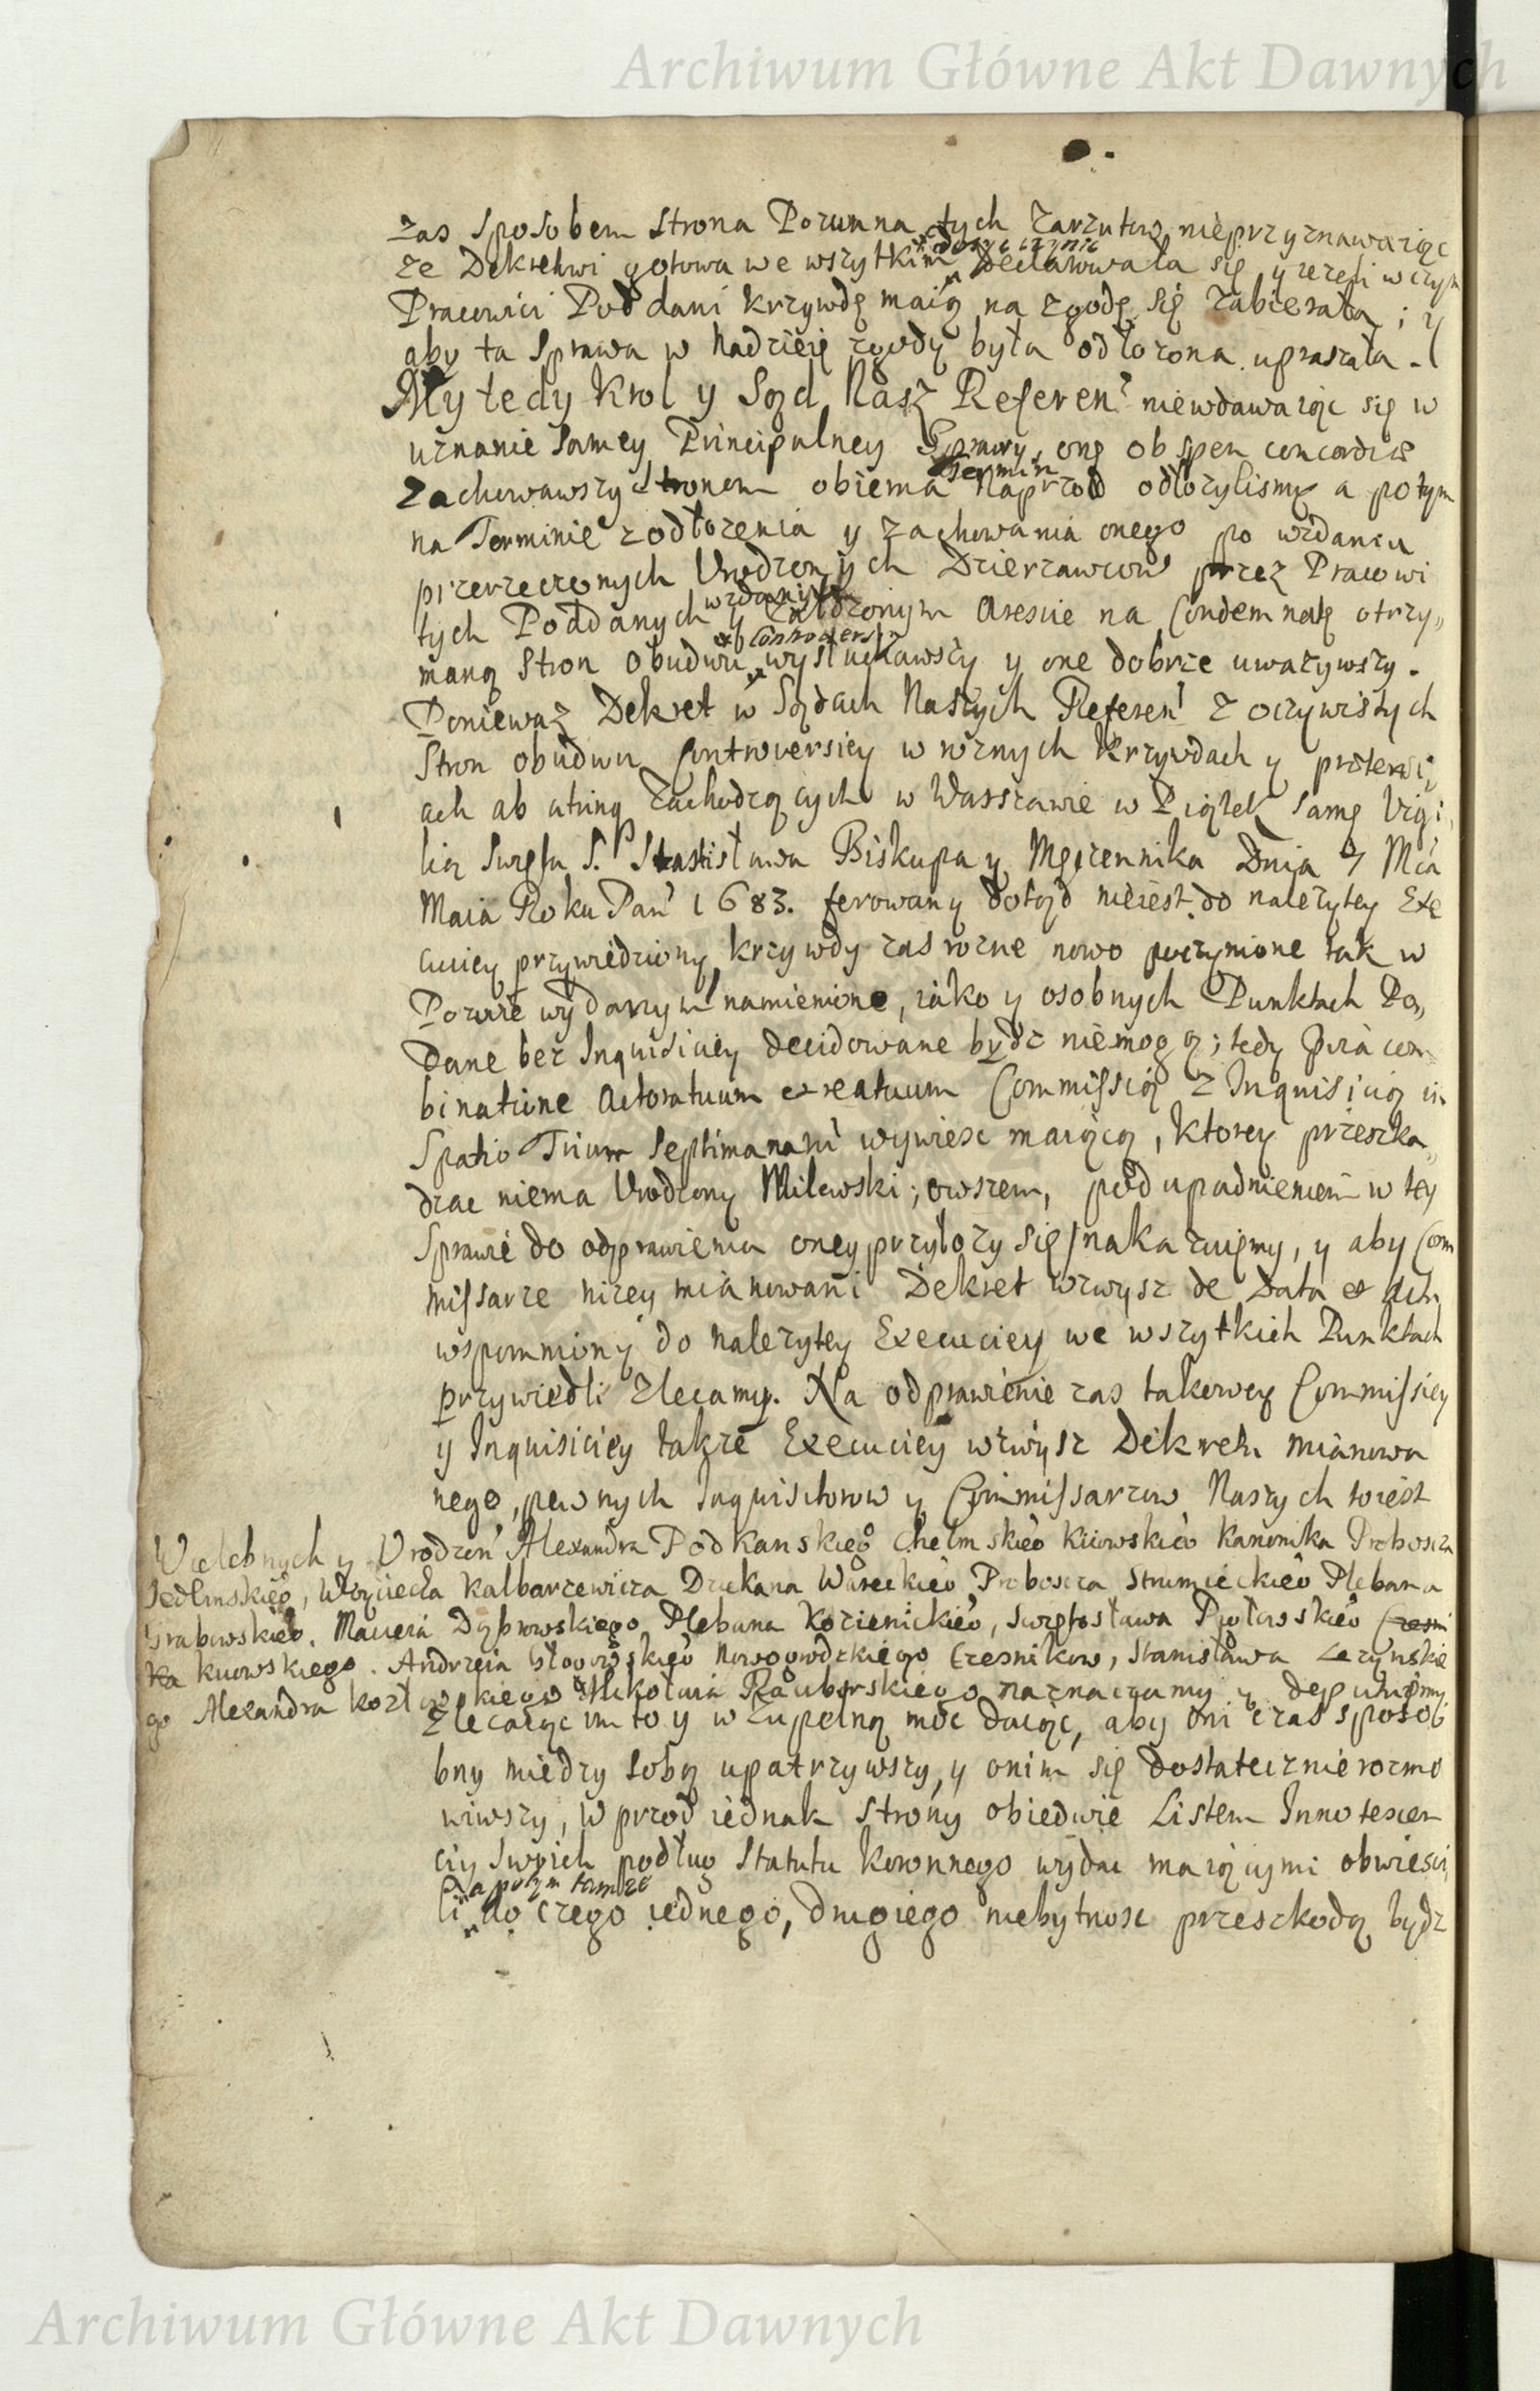 Archiwum Główne Akt Dawnych
zas sposobem strona Pozwana tych zarzutow nieprzyznawaiąc
dosyc czynic
ze Dekretowi gotowa we wszytkim declarowała się y ieżeli w czym
Pracowici Poddani krzywdę maią na zgodę się zabierała ; y
aby ta sprawa w nadzieię zgody była odłozona upraszała .
My tedy Krol y Sąd Nasz Referen niewdawaiąc się w
uznanie samey Principalney Sprawy, onę ob spem concordiæ
Termin
zachowawszy stronom obiema naprzod odłozylismy a potym
na Terminie z odłozenia y zachowania onego po wzdaniu
przerzeczonych Urodzonych Dzierzawcow przez Pracowi
wzdanych
tych Poddanych y załozonym arescie na Condemnatę otrzy„
Controversyi
maną Stron obudwu wysłuchawszy y one dobrze uwazywszy.
Poniewaz Dekret w Sądach Naszych Referen z oczywistych
Stron obudwu Controversiey w roznych krzywdach y
ach ab utrinq zachodzących w Warszawie w Piątek samę Vigi
lią Swięta S. Stanisława Biskupa y Męczennika Dnia 7 Mca
Maia Roku Pan 1683. ferowany dotąd nieiest do nalezytey Exe
cuciey przywiedziony, krzywdy zas rozne nowo poczynione tak w
Pozwie wydanym namienione, iako y osobnych Punktach Po„
dane bez Inquisiciey decidowane bydz niemogą; tedy præ com
binatione actoratuum et reatuum Commissią z Inquisicią in
Spatio Trium Septimanarum wywiesc maiącą, ktorey przeszka„
dzac niema Urodzony Milewski; owszem, pod upadnieniem w tey
Sprawie do odprawienia oney przyłozy się nakazuiemy, y aby Com
missarze nizey mianowani Dekret wzwysz de Data et actu
wspomniony do nalezytey Execuciey we wszytkich Punktach
przywiedli zlecamy. Na odprawienie zas takowey Commissiey
y Inquisiciey takze Execuciey wzwysz Dekretu mianowa
nego, pewnych Inquisitorow y Commissarzow Naszych toiest
Wielebnych y Urodzon Alexandra Podkanskiego Chelmskieo Kiiowskieo Kanonika Probosza
Jedlinskieo, Woyciecha Kalbarzewicza Dziekana Wareckieo Probosza Strumieckieo Plebana
Grabowskieo. Macieia Dąbrowskiego Plebana Kozienickieo, Swiętosława Czesni
ka kiiowskiego. Andrzeia Nowogrodzkiego Czesnikow, Stanisława Lezynskie
go Alexandra Kozłowskiego Mikołaia naznaczamy y deputuiemy.
zlecaiąc im to y w zupełną moc daiąc, aby oni czas sposo
bny miedzy sobą upatrzywszy, y onim się dostatecznie rozmo
wiwszy, w przod iednak strony obiedwie Listem Innotescen
ciy swoich podług Statutu koronnego wydac maiącymi obwiesci
a potym tamze
li do czego iednego, drugiego niebytnosc przeszkodą bydz
Archiwum Główne Akt Dawnych